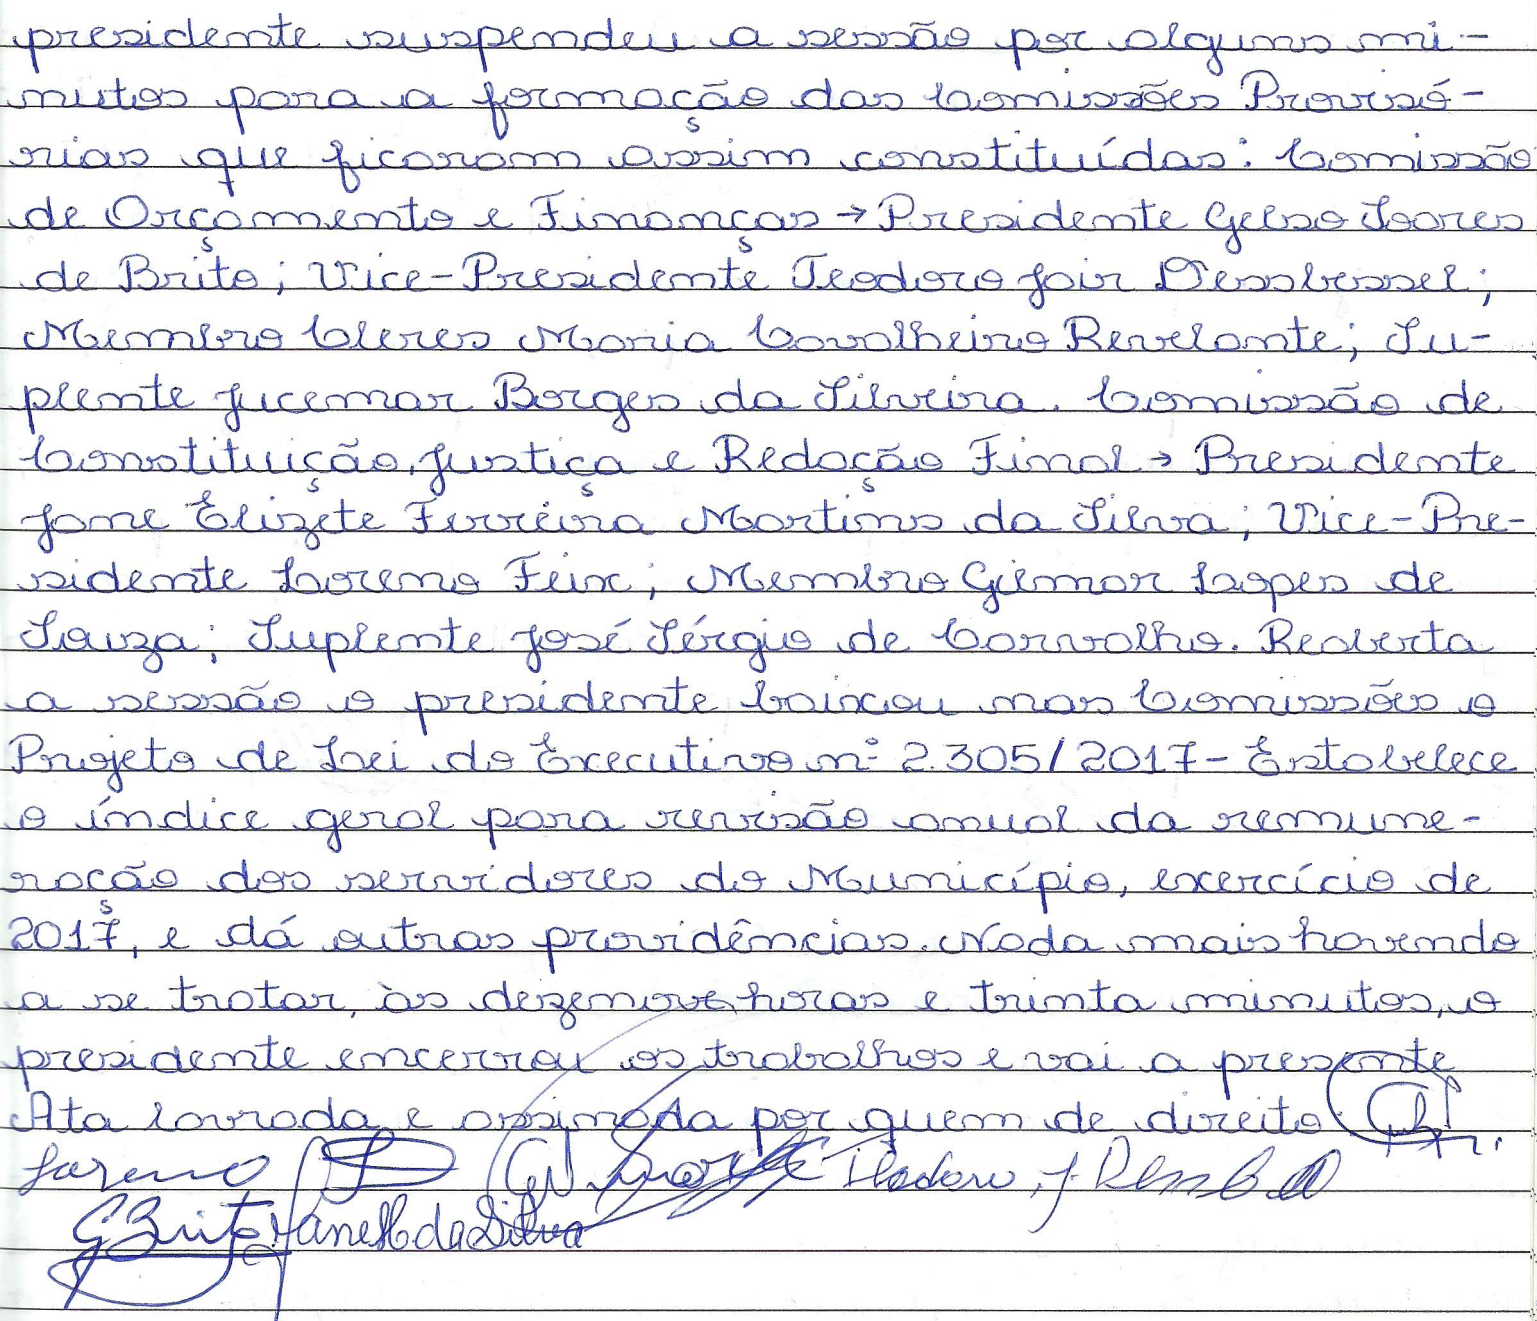 presidente suspendeu a sessão por alguns mi-
nutos para a formação das Comissões Provisó-
rias que ficaram assim constituídas: Comissão
de Orçamento e Finanças → Presidente Gelso Soares
de Brito; Vice-Presidente Teodoro Jair Dessbessel;
Membro Cleres Maria Cavalheiro Revelante; Su-
plente Jucemar Borges da Silveira. Comissão de
Constituição, Justiça e Redação Final → Presidente
Jane Elizete Ferreira Martins da Silva; Vice-Pre-
sidente Loreno Feix; Membro Gilmar Lopes de
Souza; Suplente José Sérgio de Carvalho. Reaberta
a sessão o presidente baixou nas Comissões o
Projeto de Lei do Executivo nº 2.305/2017 - Estabelece
o índice geral para revisão anual da remune-
ração dos servidores do Município, exercício de
2017, e dá outras providências. Nada mais havendo
a se tratar, às dezenove horas e trinta minutos, o
presidente encerrou os trabalhos e vai a presente
Ata lavrada e assinada por quem de direito.
Loreno Teodoro J. Dessbessel
GBrito Jane M da Silva